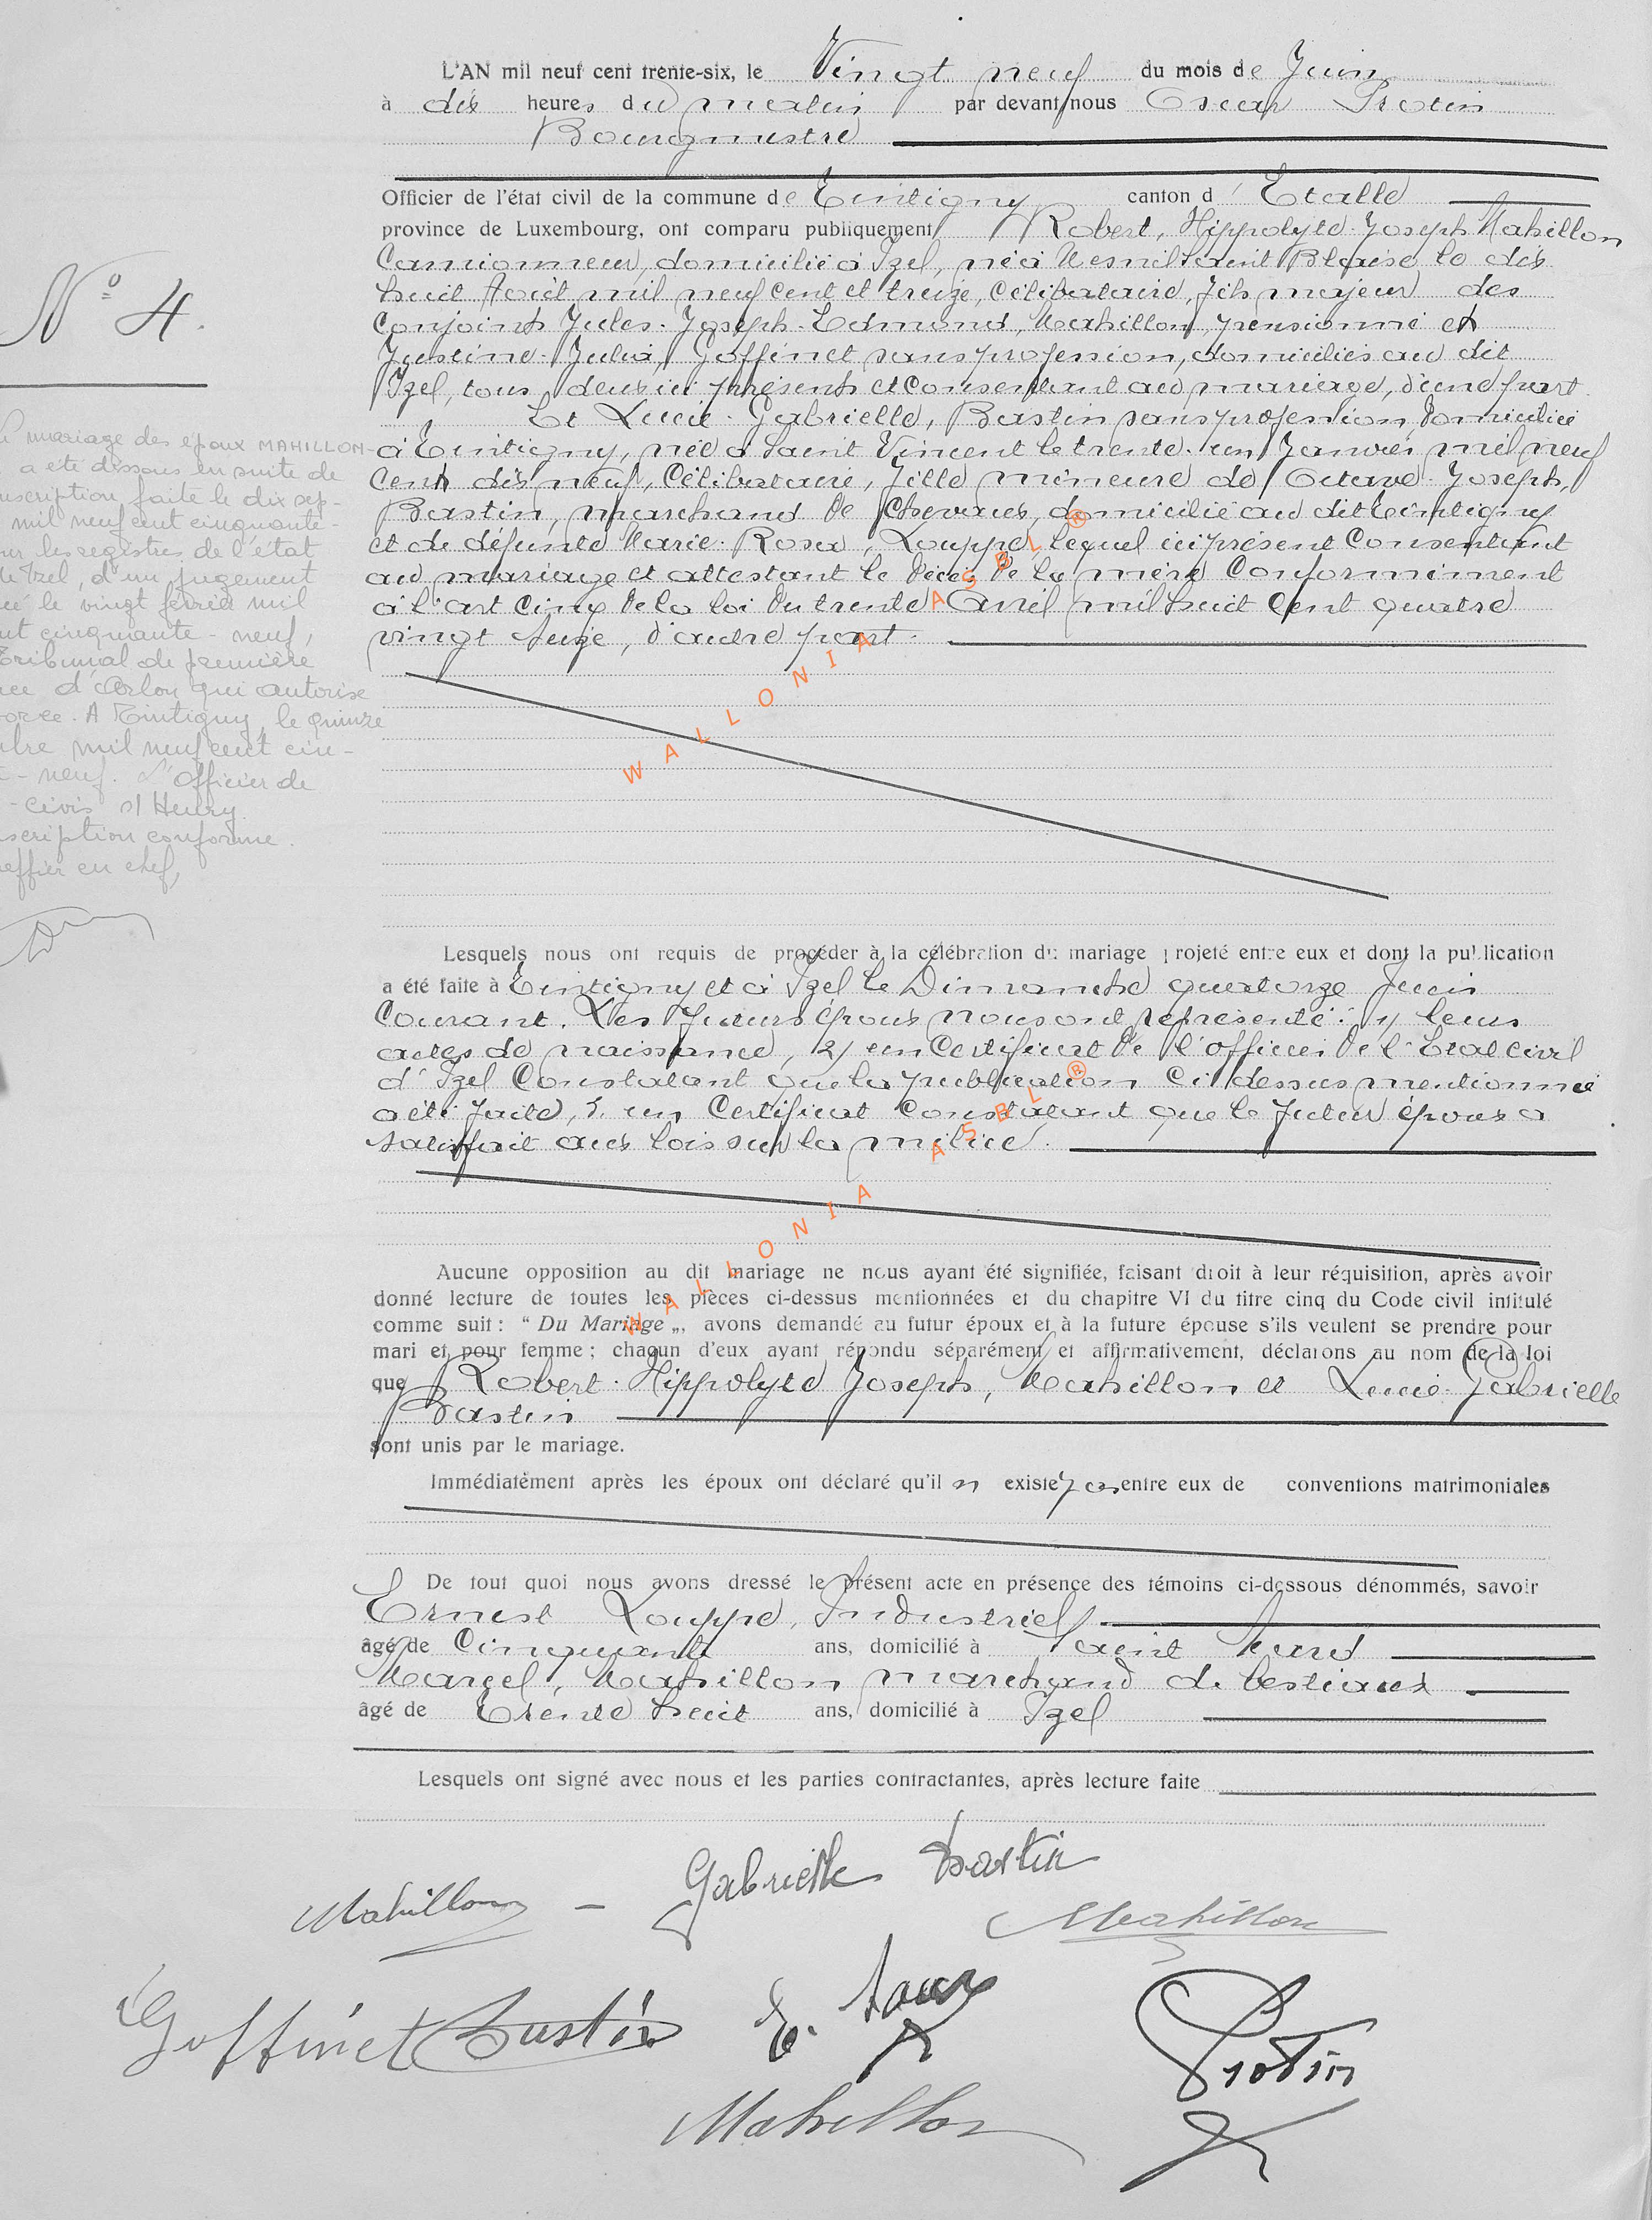 L'AN mil neuf cent trente-six, le Vingt neuf du mois de Juin
à dix heures du matin par devant nous Oscar Protin
Bourgmestre
Officier de l'état civil de la commune de Tintigny canton d' Etalle
province de Luxembourg, ont comparu publiquement Robert, Hippolyte Joseph Mahillon
Camionneur, domicilié à Izel, né à Mesnil Saint Blaise le dix
huit Août mil neuf cent et treize, Célibataire, fils majeur des
Conjoints Jules. Joseph. Edmond, Mahillon, pensionné et
Justine. Julia, Goffinet sans profession, domiciliés au dit
Izel, tous deux ici présents et Consentant au mariage, d'une part.
Et Lucie. Gabrielle, Bastin sans profession domiciliée
à Tintigny, née à Saint Vincent le trente. un Janvier mil neuf
Cent dix neuf, Célibataire, fille mineure de Octave. Joseph,
Bastin, marchand de Chevaux, domicilié au dit Tintigny
et de défunte Marie. Rosa, Louppe, lequel ici présent Consentant
au mariage et attestant le décès de la mère Conformément
à l'art Cinq de la loi du trente Avril mil huit Cent quatre
vingt Seize, d'autre part.
Nº 4.
mariage des époux MAHILLON-
a été dissous en suite de
faite le dix sep-
mil neuf cent cinquante-
les registres de l'état
d'Izel, d'un jugement
le vingt février mil
cinquante - neuf,
Tribunal de première
d'Arlon qui autorise
A Tintigny, le quinze
mil neuf cent cin-
- neuf. L'Officier de
- civil s/ Henry.
conforme.
en chef,
WALLONIA ASBL ®
Lesquels nous ont requis de procéder à la célébration du mariage projeté entre eux et dont la publication
a été faite à Tintigny et à Izel le Dimanche quatorze Juin
Courant. Les futurs époux nous ont représenté: 1/ leurs
actes de naissance, 2/ un Certificat de l'officier de l'Etat civil
d'Izel Constatant que la publication Ci dessus mentionnée
a été faite, 3. un Certificat Constatant que le futur époux a
satisfait aux lois sur la milice.
WALLONIA ASBL ®
Aucune opposition au dit mariage ne nous ayant été signifiée, faisant droit à leur réquisition, après avoir
donné lecture de toutes les pièces ci-dessus mentionnées et du chapitre VI du titre cinq du Code civil intitulé
comme suit : “ Du Mariage „, avons demandé au futur époux et à la future épouse s'ils veulent se prendre pour
mari et pour femme ; chacun d'eux ayant répondu séparément et affirmativement, déclarons au nom de la loi
que Robert. Hippolyte Joseph, Mahillon et Lucie. Gabrielle
Bastin
sont unis par le mariage.
Immédiatement après les époux ont déclaré qu'il n existe pas entre eux de conventions matrimoniales
De tout quoi nous avons dressé le présent acte en présence des témoins ci-dessous dénommés, savoir
Ernest Louppe, Industriel
âgé de Cinquante ans, domicilié à Saint Mard
Marcel, Mahillon marchand de bestiaux
âgé de Trente huit ans, domicilié à Izel
Lesquels ont signé avec nous et les parties contractantes, après lecture faite
Mahillon - Gabrielle Bastin
Mahillon
Goffinet Justin
Protin
Mahillon